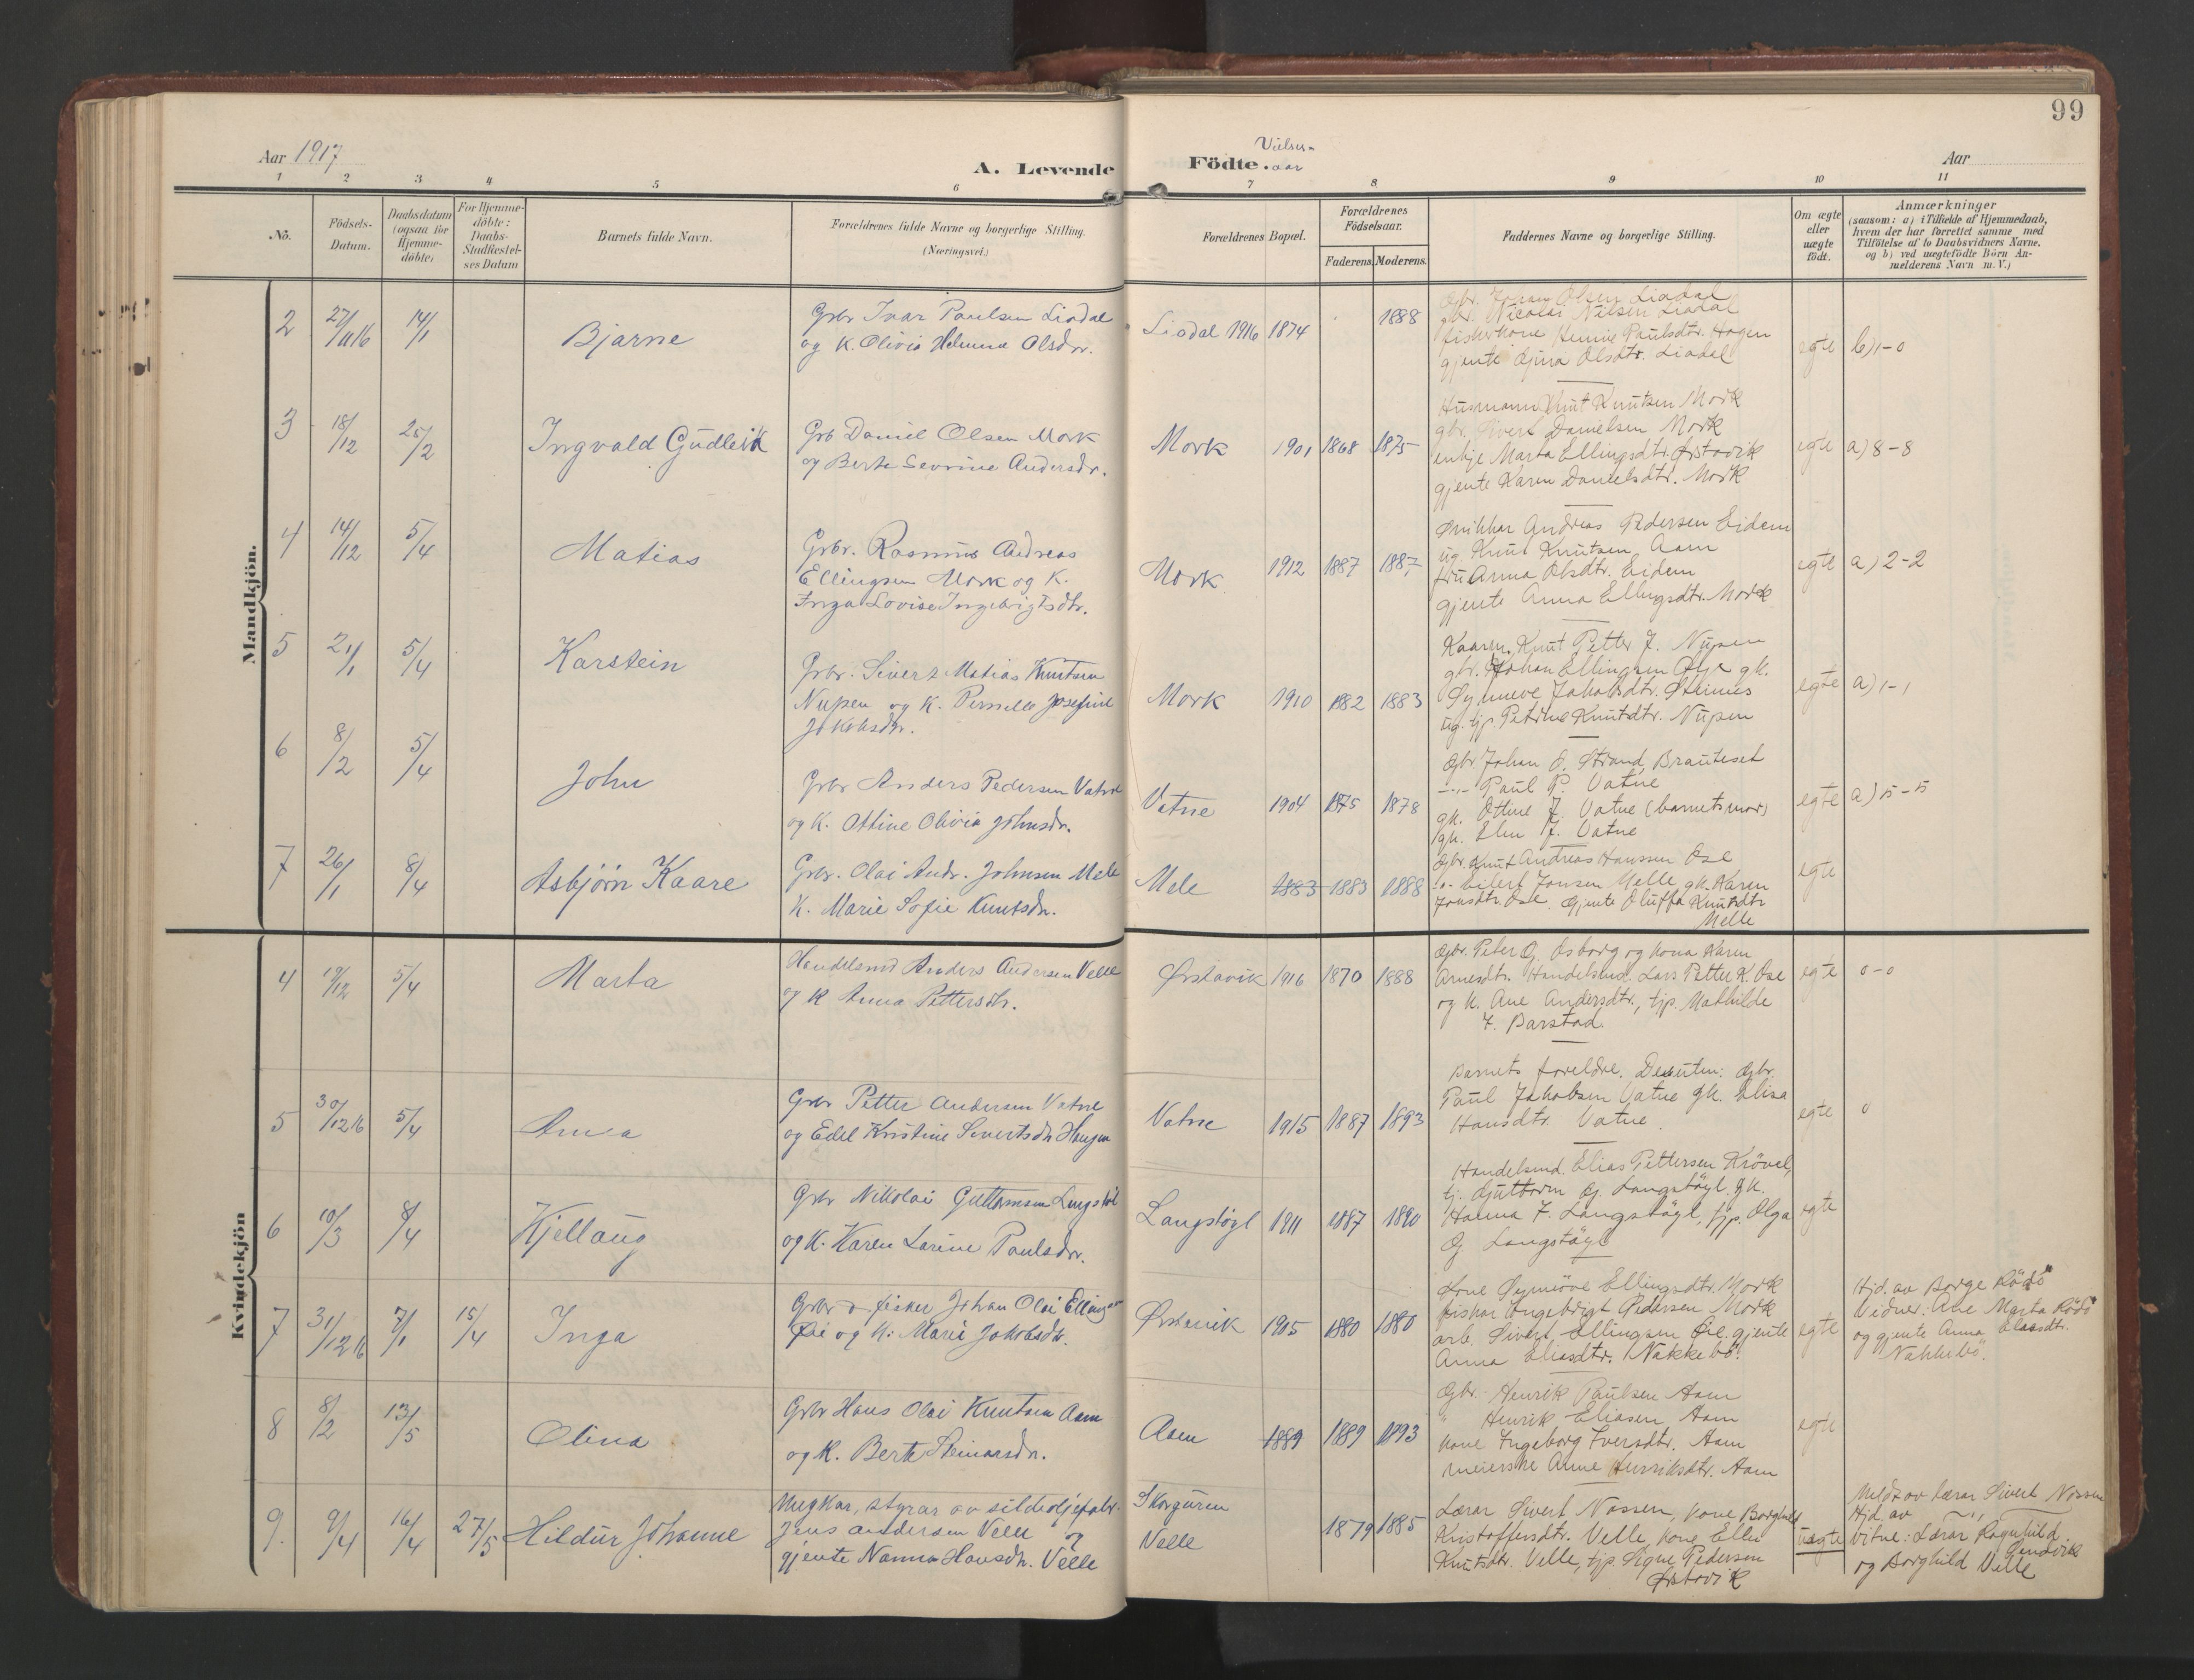 99
Aar 1917
A. Levende
Födte.
Vielses-
aar
Aar
1 2 3 4 5 6 7 8 9 10 11
No.
Födsels-
Datum.
Daabsdatum
(ogsaa for
Hjemme-
döbte)
For Hjemme-
döbte:
Daabs-
Stadfestel-
ses Datum
Barnets fulde Navn.
Forældrenes fulde Navne og borgerlige Stilling.
(Næringsvei.)
Forældrenes Bopæl.
Forældrenes
Födselsaar.
Faderens. Moderens.
Faddernes Navne og borgerlige Stilling.
Om ægte
eller
uægte
födt.
Anmærkninger
(saasom: a) i Tilfælde af Hjemmedaab,
hvem der har forrettet samme med
Tilföielse af to Daabsvidners Navne.
og b) ved uægtefödte Börn An-
melderens Navn m. V.)
Mandkjön.
2 27/11 16 14/1 Bjarne
Grbr Ivar Paulsen Liadal
og K. Olivia Helmine Olsdr.
Liadal 1916 1874 1888
Gbr. Johan Olsen Liadal
gbr. Nicolai Nilsen Liadal
fiskerkone Paulsdtr. Hagen
gjente Gjina Olsdtr. Liadal
egte b) 1-0
3 18/12 25/2 Ingvald Gudleik
Grb Daniel Olsen Mork
og Berte Sevrine Andersdr.
Mork 1901 1868 1875
Husmann Knut Knutsen Mork
gbr. Sivert Danielsen Mork
enkje Marta Ellingsdtr. Ørstavik
gjente Karen Danielsdtr. Mork
egte a) 8-8
4 14/12 5/4 Matias
Grbr. Rasmus Andreas
Ellingsen Mork og K.
Inga Lovise Ingebrigtsdtr.
Mork 1912 1887 1887
Snikkar Andreas Pedersen Eidem
ug. Knut Knutsen Aam
fru Anna Olsdtr. Eidem
gjente Anna Ellingsdtr. Mork
egte a) 2-2
5 21/1 5/4 Karstein
Grbr. Sivert Matias Knutsen
Nupen og K. Pernille Josefine
Jokobsdr.
Mork 1910 1882 1883
Kaarm. Knut Petter J. Nupen
gbr. Johan Ellingsen Øye gk.
Synneve Jakobsdtr. Steinnes
ug. tjp. Petrine Knutdtr. Nupen
egte a) 1-1
6 8/2 5/4 John
Grbr Anders Pedersen Vatne
og K. Ottine Olivia Johnsdr.
Vatne 1904 1875 1878
Gbr. Johan O. Strand, Brauteset
-"- Paul P. Vatne
gk. Otline J. Vatne (barnets mor)
gk. Elen J. Vatne
egte a) 5-5
7 26/1 8/4 Asbjørn Kaare
Grbr. Olai Andr. Johnsen Mele
K. Marie Sofie Knutsdr.
Mele 1883 1883 1888
Gbr. Knut Andreas Hanssen Ose
-"- Eilert Jonsen Melle gk. Karen
Jonsdtr. Ose. Gjente Oluffa Knutsdtr
Melle
egte
Kvindekjön
4 19/12 5/4 Marta
Handelsmd Anders Andersen Velle
og K Anna Pettersdtr.
Ørstavik 1916 1870 1888
Gbr. Peter G. Osborg og kona Karen
Arnesdtr. Handelsmd. Lars Petter K. Ose
og K. Ane Andersdtr., tjp. Mathilde
J. Barstad.
egte 0-0
5 30/12 16 5/4 Anna
Grbr Petter Andersen Vatne
og Edel Kristine Sivertsdtr Haugen
Vatne 1915 1887 1893
Barnets foreldre. Desuten: Gbr.
Paul Jakobsen Vatne gk. Elisa
Hansdtr. Vatne.
egte 0
6 10/3 8/4 Kjellaug
Grbr Nikolai Guttormsen Langstöil
og K. Karen Larine Paulsdr.
Langstøyl 1911 1887 1890
Handelsmd. Elias Pettersen Krövel,
tj. Guttorm G. Langstöyl gk.
Hanna J. Langstöyl, tjp. Olga
G. Langstöyl
egte
7 31/12 16 7/1 15/4 Inga
Grbr o. fisker Johan Olai Ellingsen
Øie og K: Marie Jakobsdtr.
Ørstavik 1905 1880 1880
Kone Synnöve Ellingsdtr. Mork
fiskar Ingebrigt Pedersen Mork
arb. Sivert Ellingsen Øie. gjente
Anna Eliasdtr. Nakkebö.
egte
Hjd. av Borge Rödö
Vidner: Ane Marta Rödö
og gjente Anna Eliasdtr.
Nakkebö.
8 8/2 13/5 Olina
Grbr Hans Olai Knutsen Aam
og K. Berte Steinarsdr.
Aam 1889 1889 1893
Gbr. Henrik Paulsen Aam
" Henrik Eliasen Aam
kone Ingeborg Iversdtr. Aam
meierske Anne Henriksdtr. Aam
egte
9. 9/4 16/4 27/5 Hildur Johanne
Ungkar, styrar av sildeoljefabr.
Jens Andersen Velle og
gjente Nanna Hansdtr. Velle
Skorguren
Velle
1879 1885
Lærar Sivert Nossen, kone Borghild
Kristoffersdtr. Velle, kone Ellen
Knutsdtr. Velle, tjp. Signe Pedersen
Ørstavik
uegte
Meldt av Lærar Sivert Nossen
Hjd. av -"-
Vitne: Lærar Ragnhild
og Borghild Velle